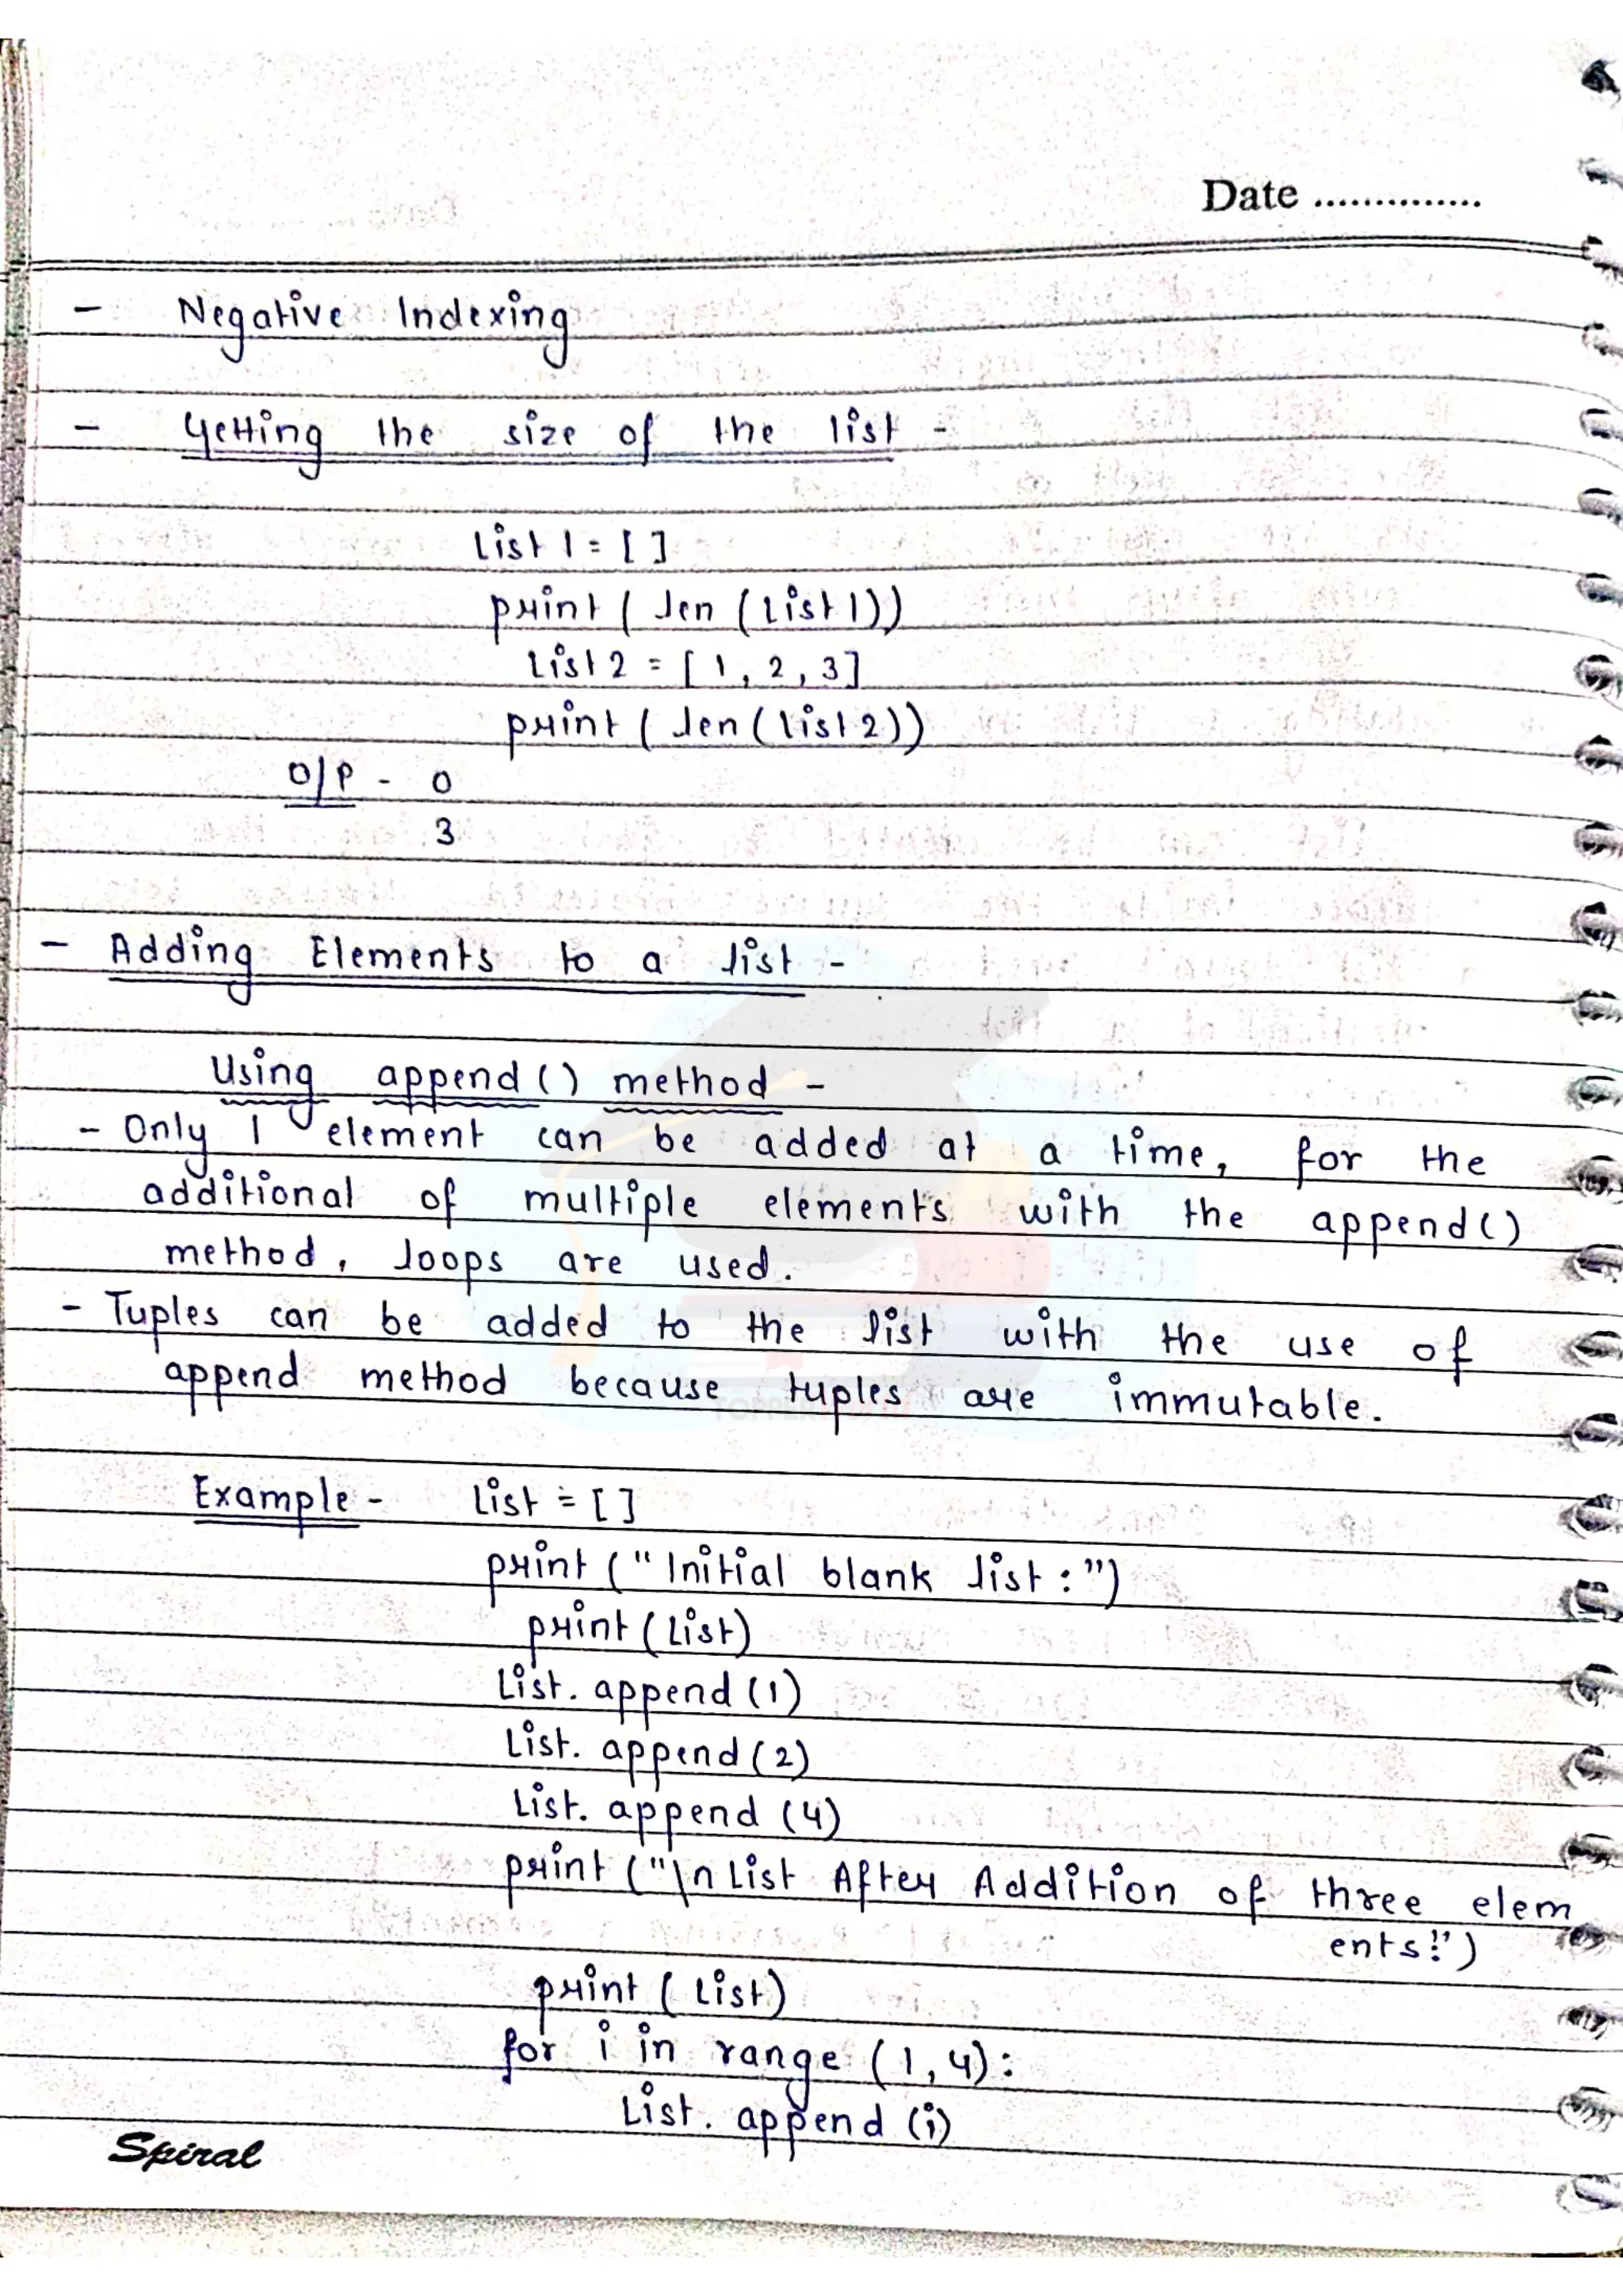 Date ..............
- Negative Indexing
- Getting the size of the list -
List 1 = [ ]
print ( len (List 1))
List 2 = [ 1, 2, 3]
print ( len ( list 2))
O/P - 0
3
- Adding Elements to a list -
Using append () method -
- Only 1 element can be added at a time, for the
additional of multiple elements with the append()
method, loops are used.
- Tuples can be added to the list with the use of
append method because tuples are immutable.
Example - List = [ ]
print (" Initial blank list : ")
print ( List)
List. append (1)
List. append (2)
List. append (4)
print ("\n List After Addition of three elem
ents:")
print ( List)
for i in range (1, 4) :
List. append (i)
Spiral